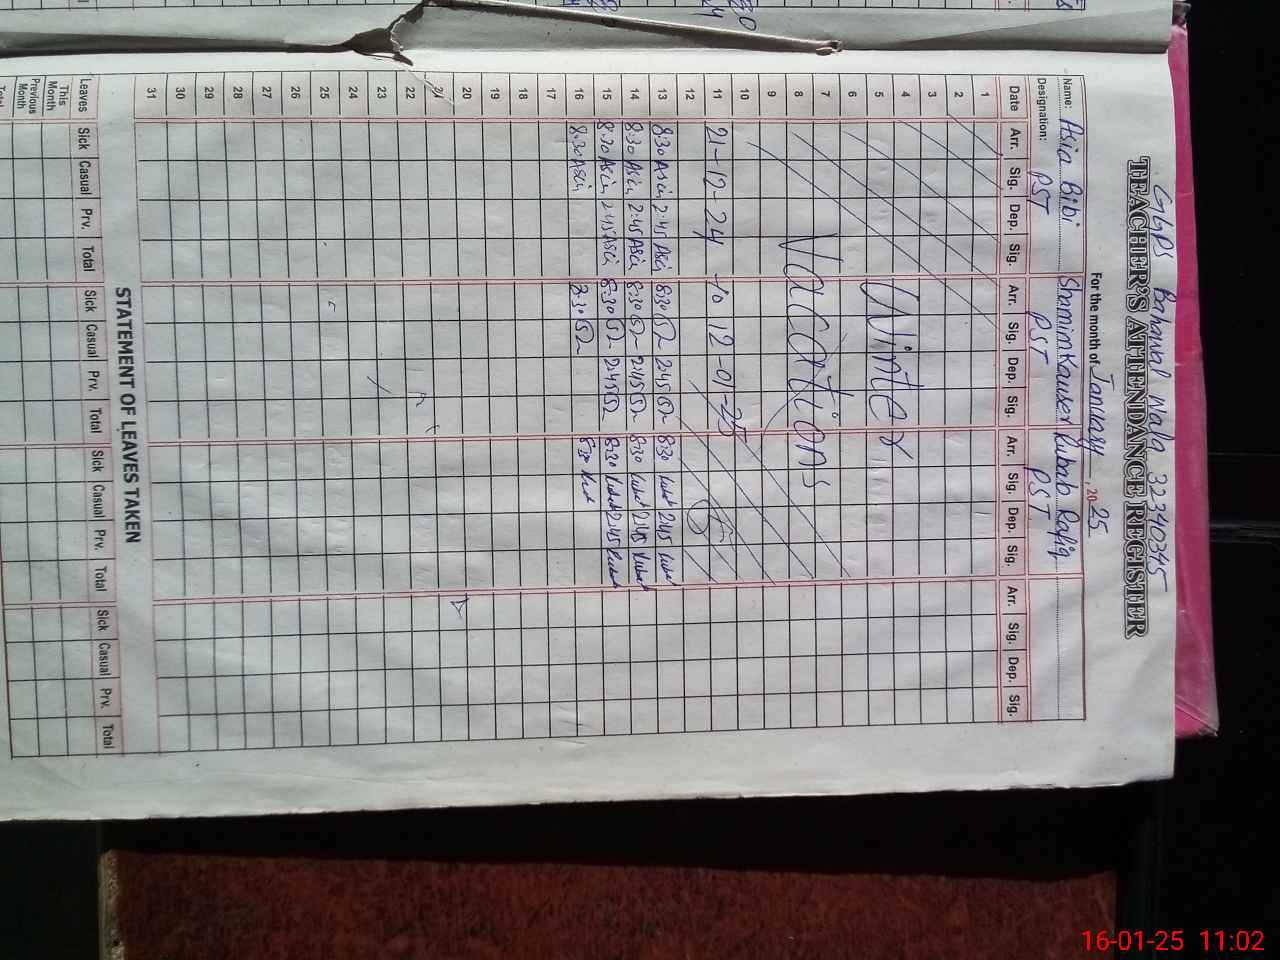 GGPS Bahawal Wala 32340345
TEACHER'S ATTENDANCE REGISTER
For the month of January, 2025
Name: Asia Bibi Shamim Kauser Rubab Rafiq
Designation: PST PST PST
Date Arr. Sig. Dep. Sig. Arr. Sig. Dep. Sig. Arr. Sig. Dep. Sig. Arr. Sig. Dep. Sig.
1
2
3
4
5 Winter
6
7
8 Vacations
9
10
11 21-12-24 to 12-01-25
12
13 8:30 Asia 2:45 Asia 8:30 2:45 8:30 Rubab 2:45 Rubab
14 8:30 Asia 2:45 Asia 8:30 2:45 8:30 Rubab 2:45 Rubab
15 8:30 Asia 2:45 Asia 8:30 2:45 8:30 Rubab 2:45 Rubab
16 8:30 Asia 8:30 8:30
17
18
19
20
21
22
23
24
25
26
27
28
29
30
31
STATEMENT OF LEAVES TAKEN
Leaves Sick Casual Prv. Total Sick Casual Prv. Total Sick Casual Prv. Total Sick Casual Prv. Total
This Month
Previous Month
Total
16-01-25 11:02